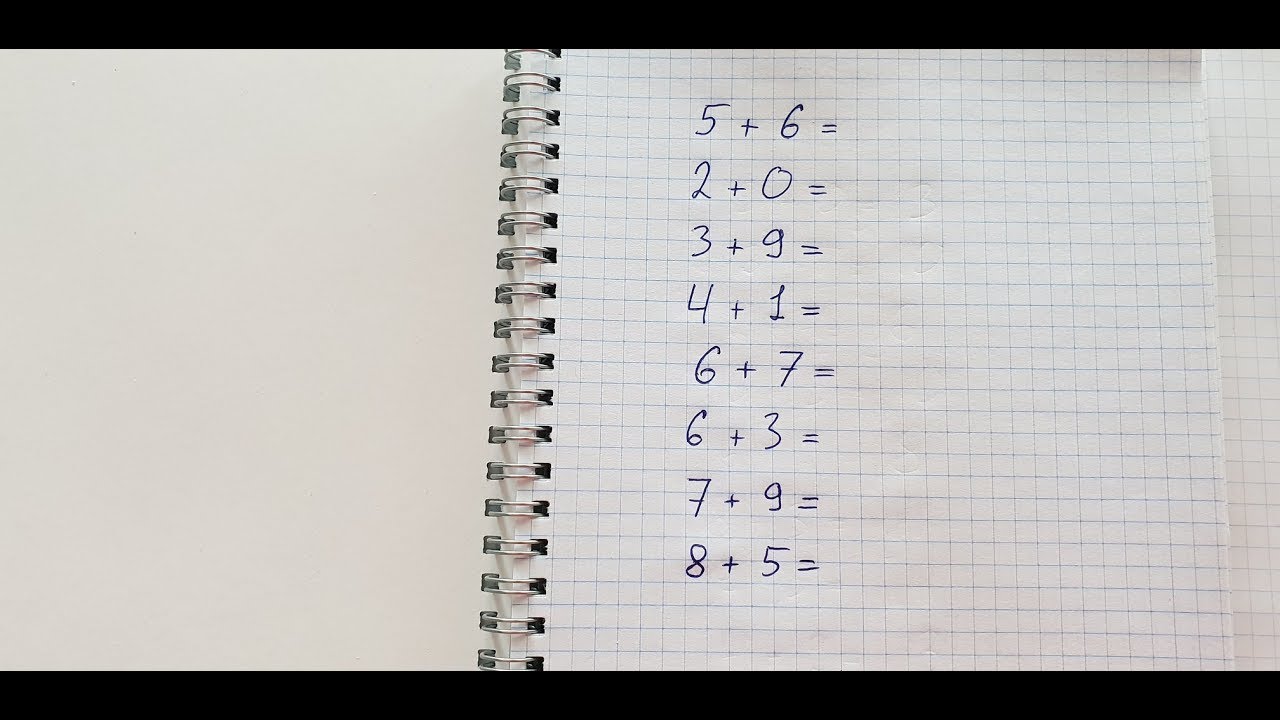 5 + 6 =
2 + 0 =
3 + 9 =
4 + 1 =
6 + 7 =
6 + 3 =
7 + 9 =
8 + 5 =